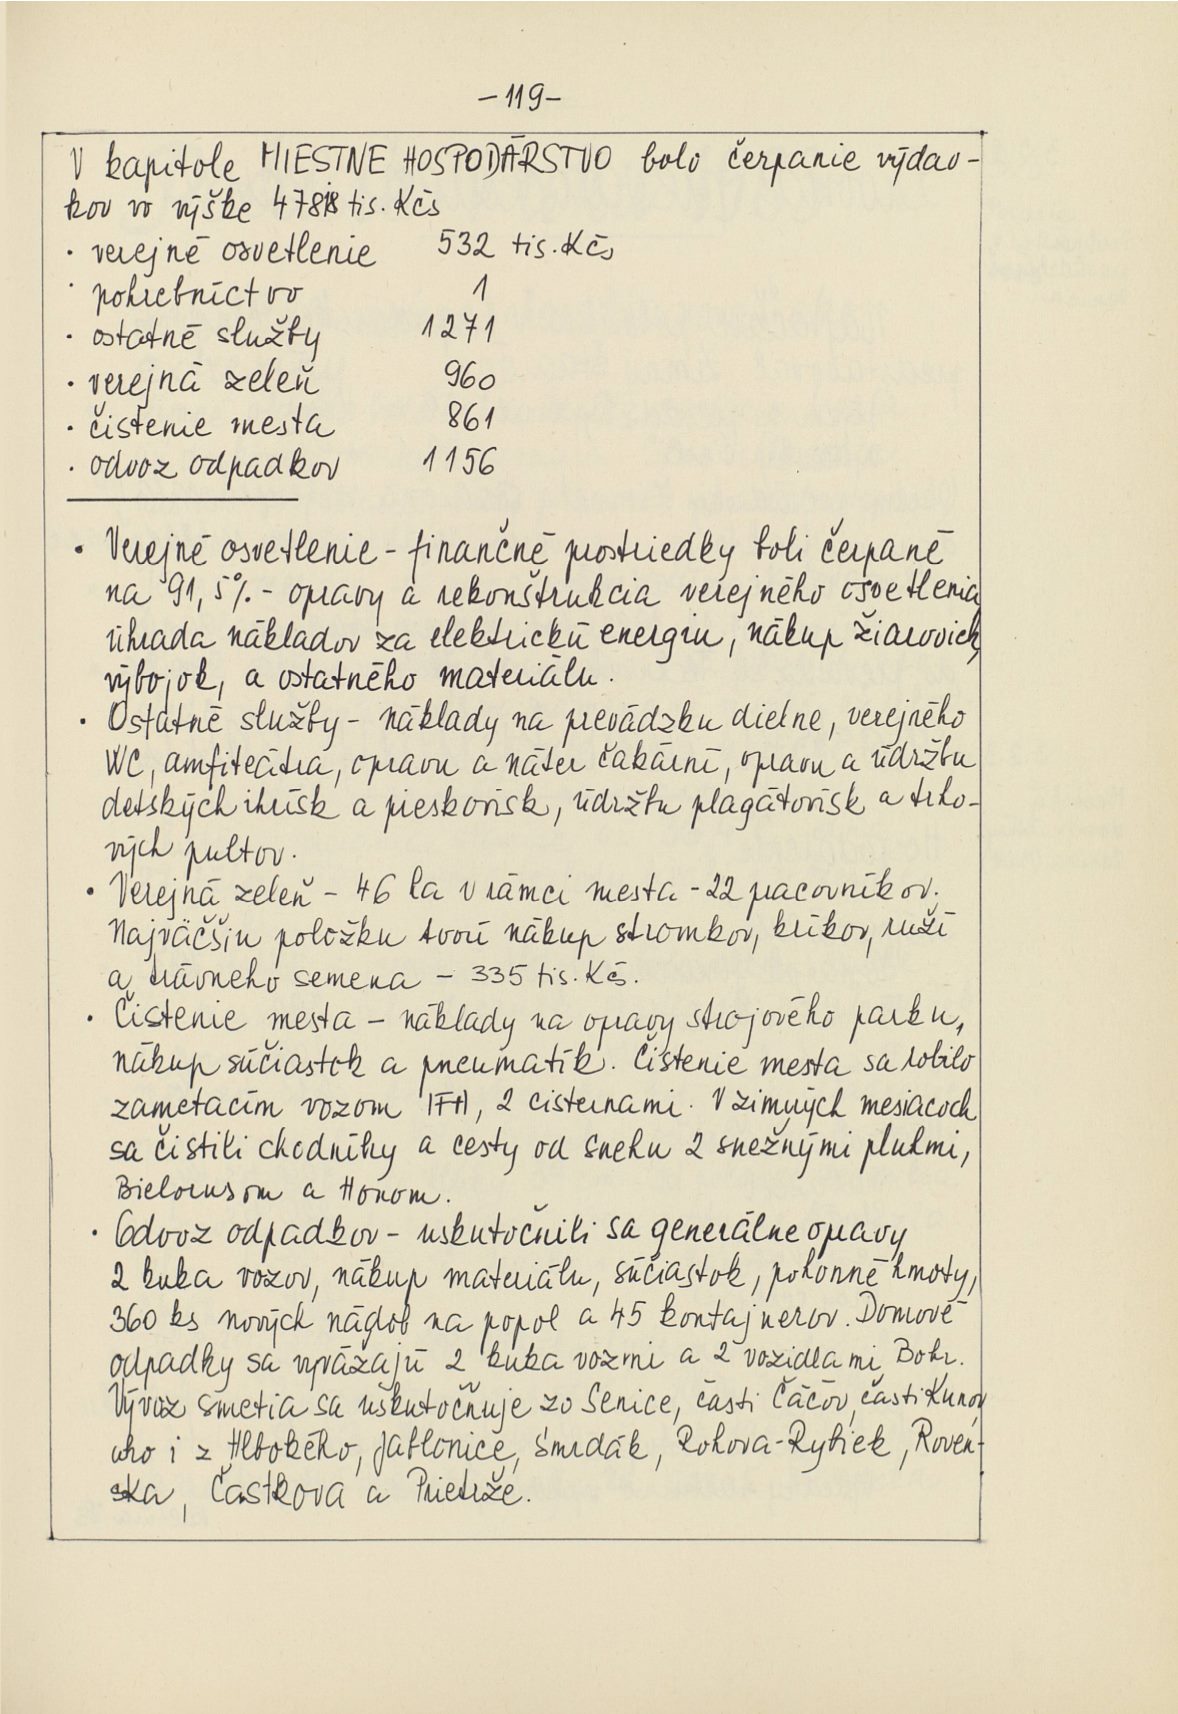 -119-
V kapitole MIESTNE HOSPODÁRSTVO bolo čerpanie výdav-
kov vo výške tis. Kčs
· verejné osvetlenie 532 tis. Kčs
· pohrebníctvo 1
· ostatné služby 1271
· verejná zeleň 960
· čistenie mesta 861
· odvoz odpadkov 1156
• Verejné osvetlenie - finančné prostriedky boli čerpané
na 91,5% - opravy a rekonštrukcia verejného osvetlenia
úhrada nákladov za elektrickú energiu, nákup žiaroviek,
výbojok, a ostatného materiálu.
· Ostatné služby - náklady na prevádzku dielne, verejného
WC, amfiteátra, opravu a náter čakární, opravu a údržbu
detských ihrísk a pieskovísk, údržbu plagátovísk a trho-
vých pultov.
• Verejná zeleň - 46 ha v rámci mesta - 22 pracovníkov.
Najväčšiu položku tvorí nákup stromkov, kríkov, ruží
a trávneho semena - 335 tis. Kčs.
· Čistenie mesta - náklady na opravy strojového parku,
nákup súčiastok a pneumatík. Čistenie mesta sa robilo
zametacím vozom IFA, 2 cisternami. V zimných mesiacoch
sa čistili chodníky a cesty od snehu 2 snežnými pluhmi,
Bielorusom a Honom.
· Odvoz odpadkov - uskutočnili sa generálne opravy
2 kuka vozov, nákup materiálu, súčiastok, pohonné hmoty,
360 ks nových nádob na popol a 45 kontajnerov. Domové
odpadky sa vyvážajú 2 kuka vozmi a 2 vozidlami Bobr.
Vývoz smetia sa uskutočňuje zo Senice, časti Čáčov, časti Kunov
ako i z Hlbokého, Jablonice, Smrdák, Rohova-Rybiek, Roven-
ska, Častkova a Prietrže.